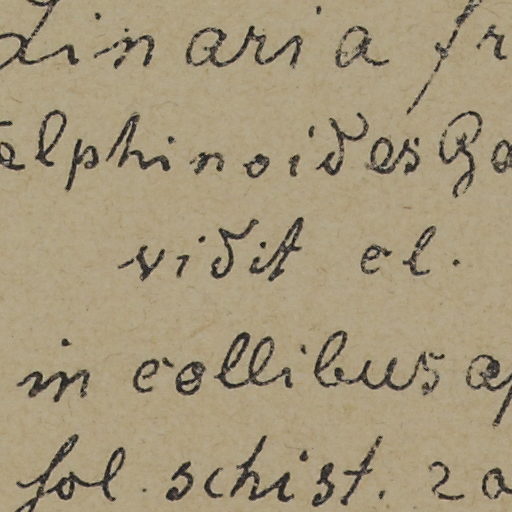 Linaria fr
elphinoides Ga
vidit cl.
in collibus ap
sol. schist. 20